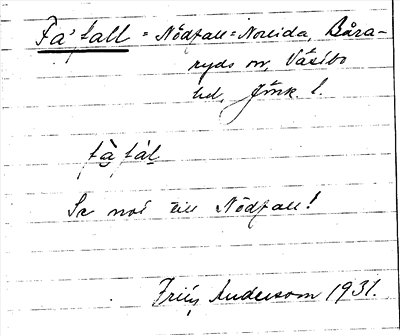 Få'tall = Nödfall = Noreida, Båra-
ryds sn, Västbo
hd, Jönk. l.
få̀tál
Se not till Nödfall!
Frith Anderson 1931.